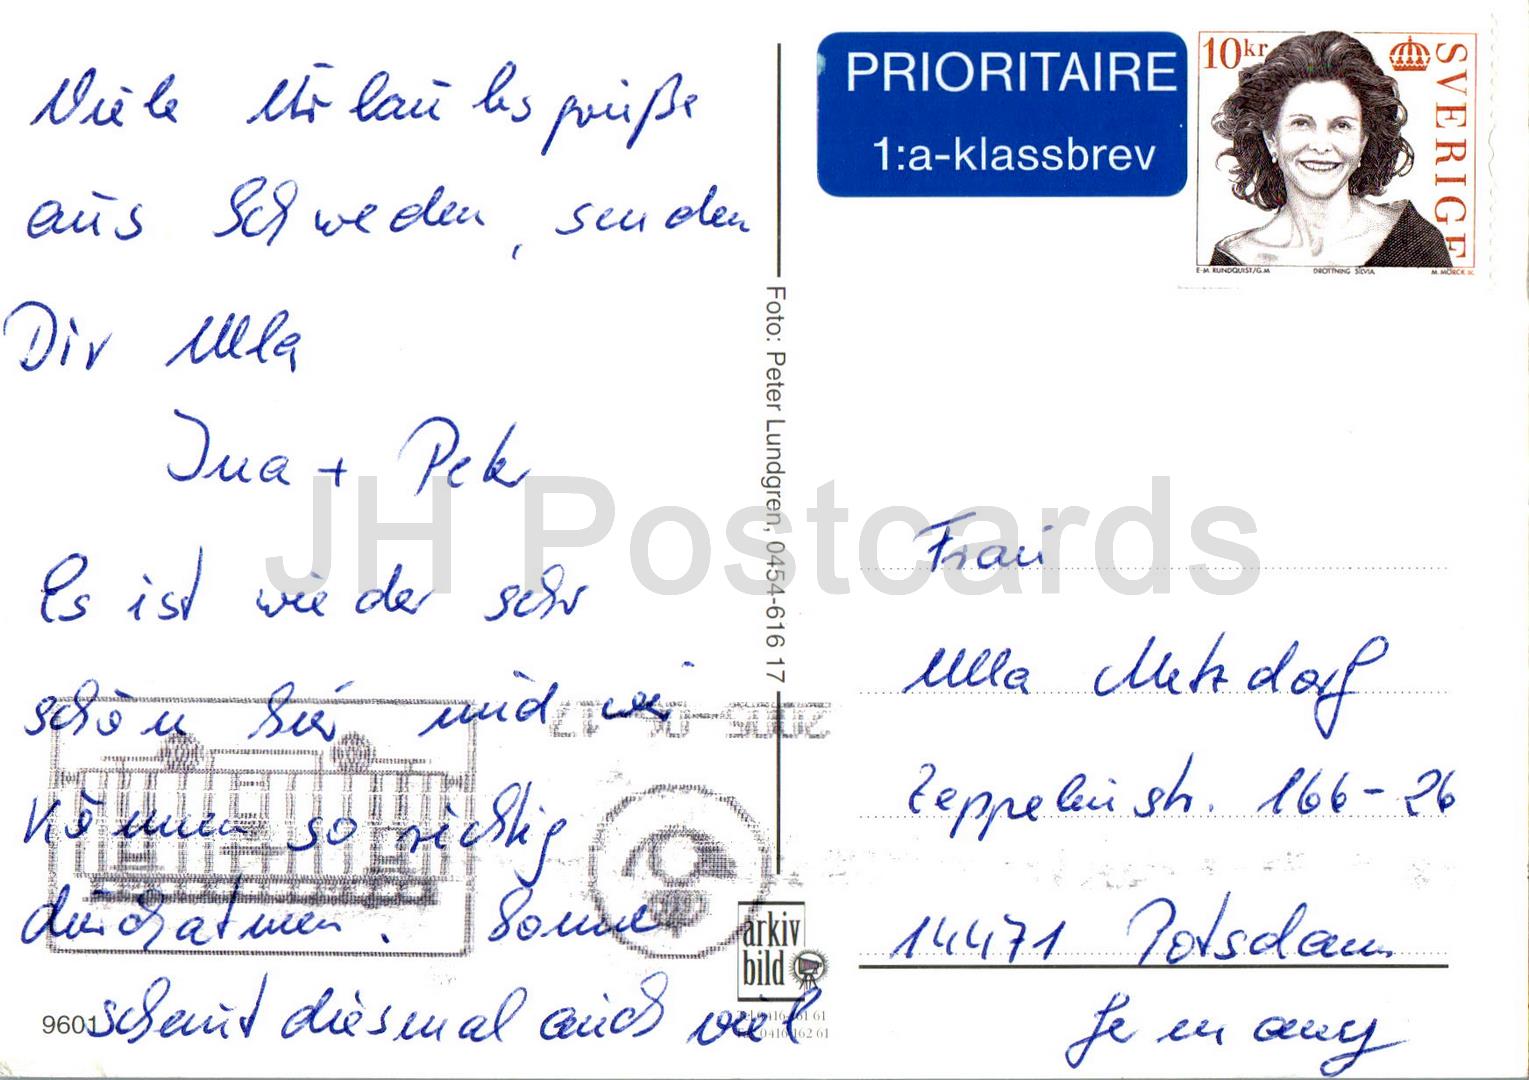 Viele Urlaubsgrüße
aus Schweden, senden
Dir Ulla
Ina + Peter
Es ist wieder sehr
schön hier und wir
können so richtig
durchatmen. Sonne
scheint diesmal auch viel
9601
Foto: Peter Lundgren, 0454-616 17
arkiv
bild
PRIORITAIRE
1:a-klassbrev
10kr
SVERIGE
E-M. RUNDQUIST/G.M DROTTNING SILVIA M. MÖRCK SC.
Frau
Ulla Metzdorf
Zeppelinstr. 166-26
14471 Potsdam
Germany
JH Postcards